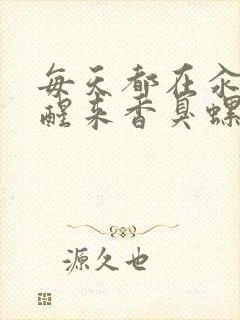 每天都在汆
醒来香臭螺
源久也